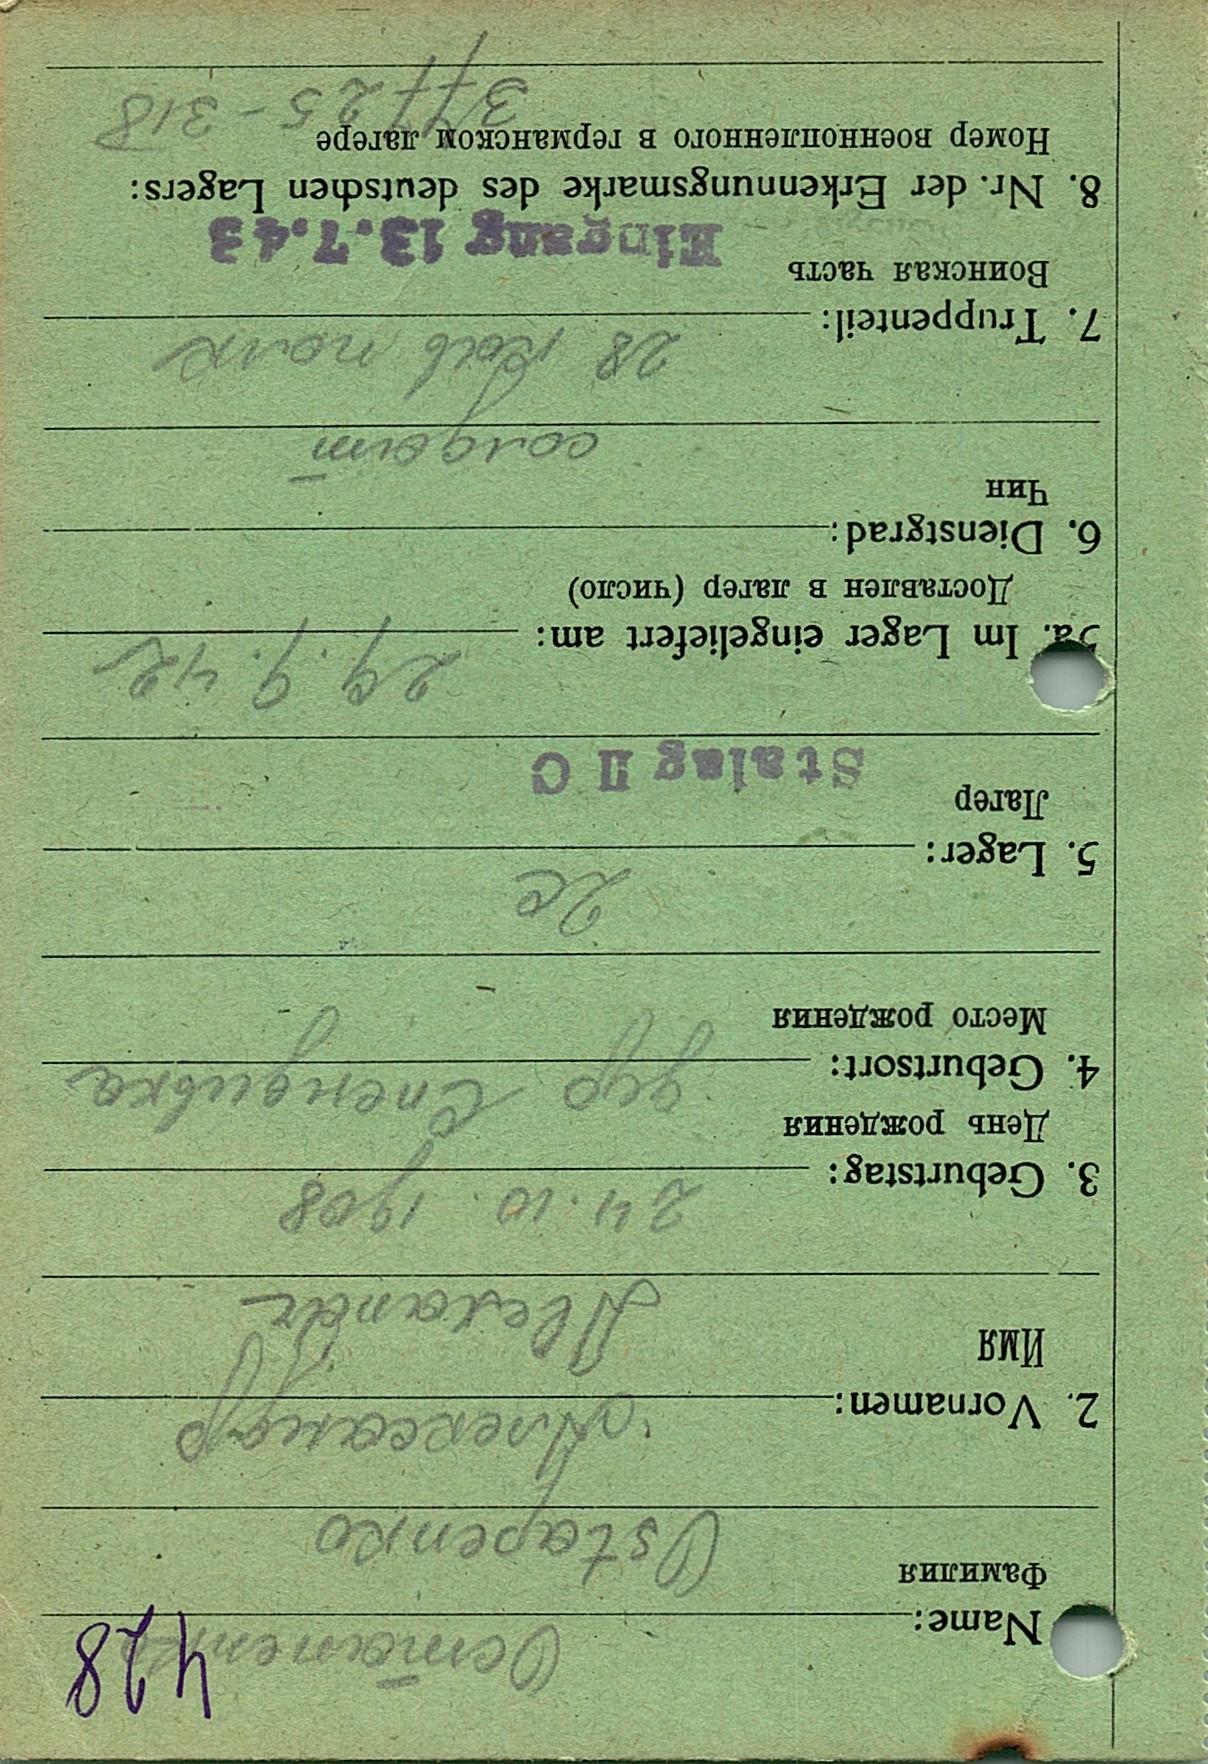 428
Name: Остапенко
Фамилия
Ostapenko
2. Vornamen: Александр
Имя
Alexandr
3. Geburtstag: 24.10.1908
День рождения
4. Geburtsort: дер
Место рождения
5. Lager: 2c
Лагер
Stalag II C
5a. Im Lager eingeliefert am: 29.9.42
Доставлен в лагер (число)
6. Dienstgrad:
Чин
солдат
7. Truppenteil: 28 кав полк
Воинская часть
Eingang 13.7.43
8. Nr. der Erkennungsmarke des deutschen Lagers:
Номер военнопленного в германском лагере
37725-318